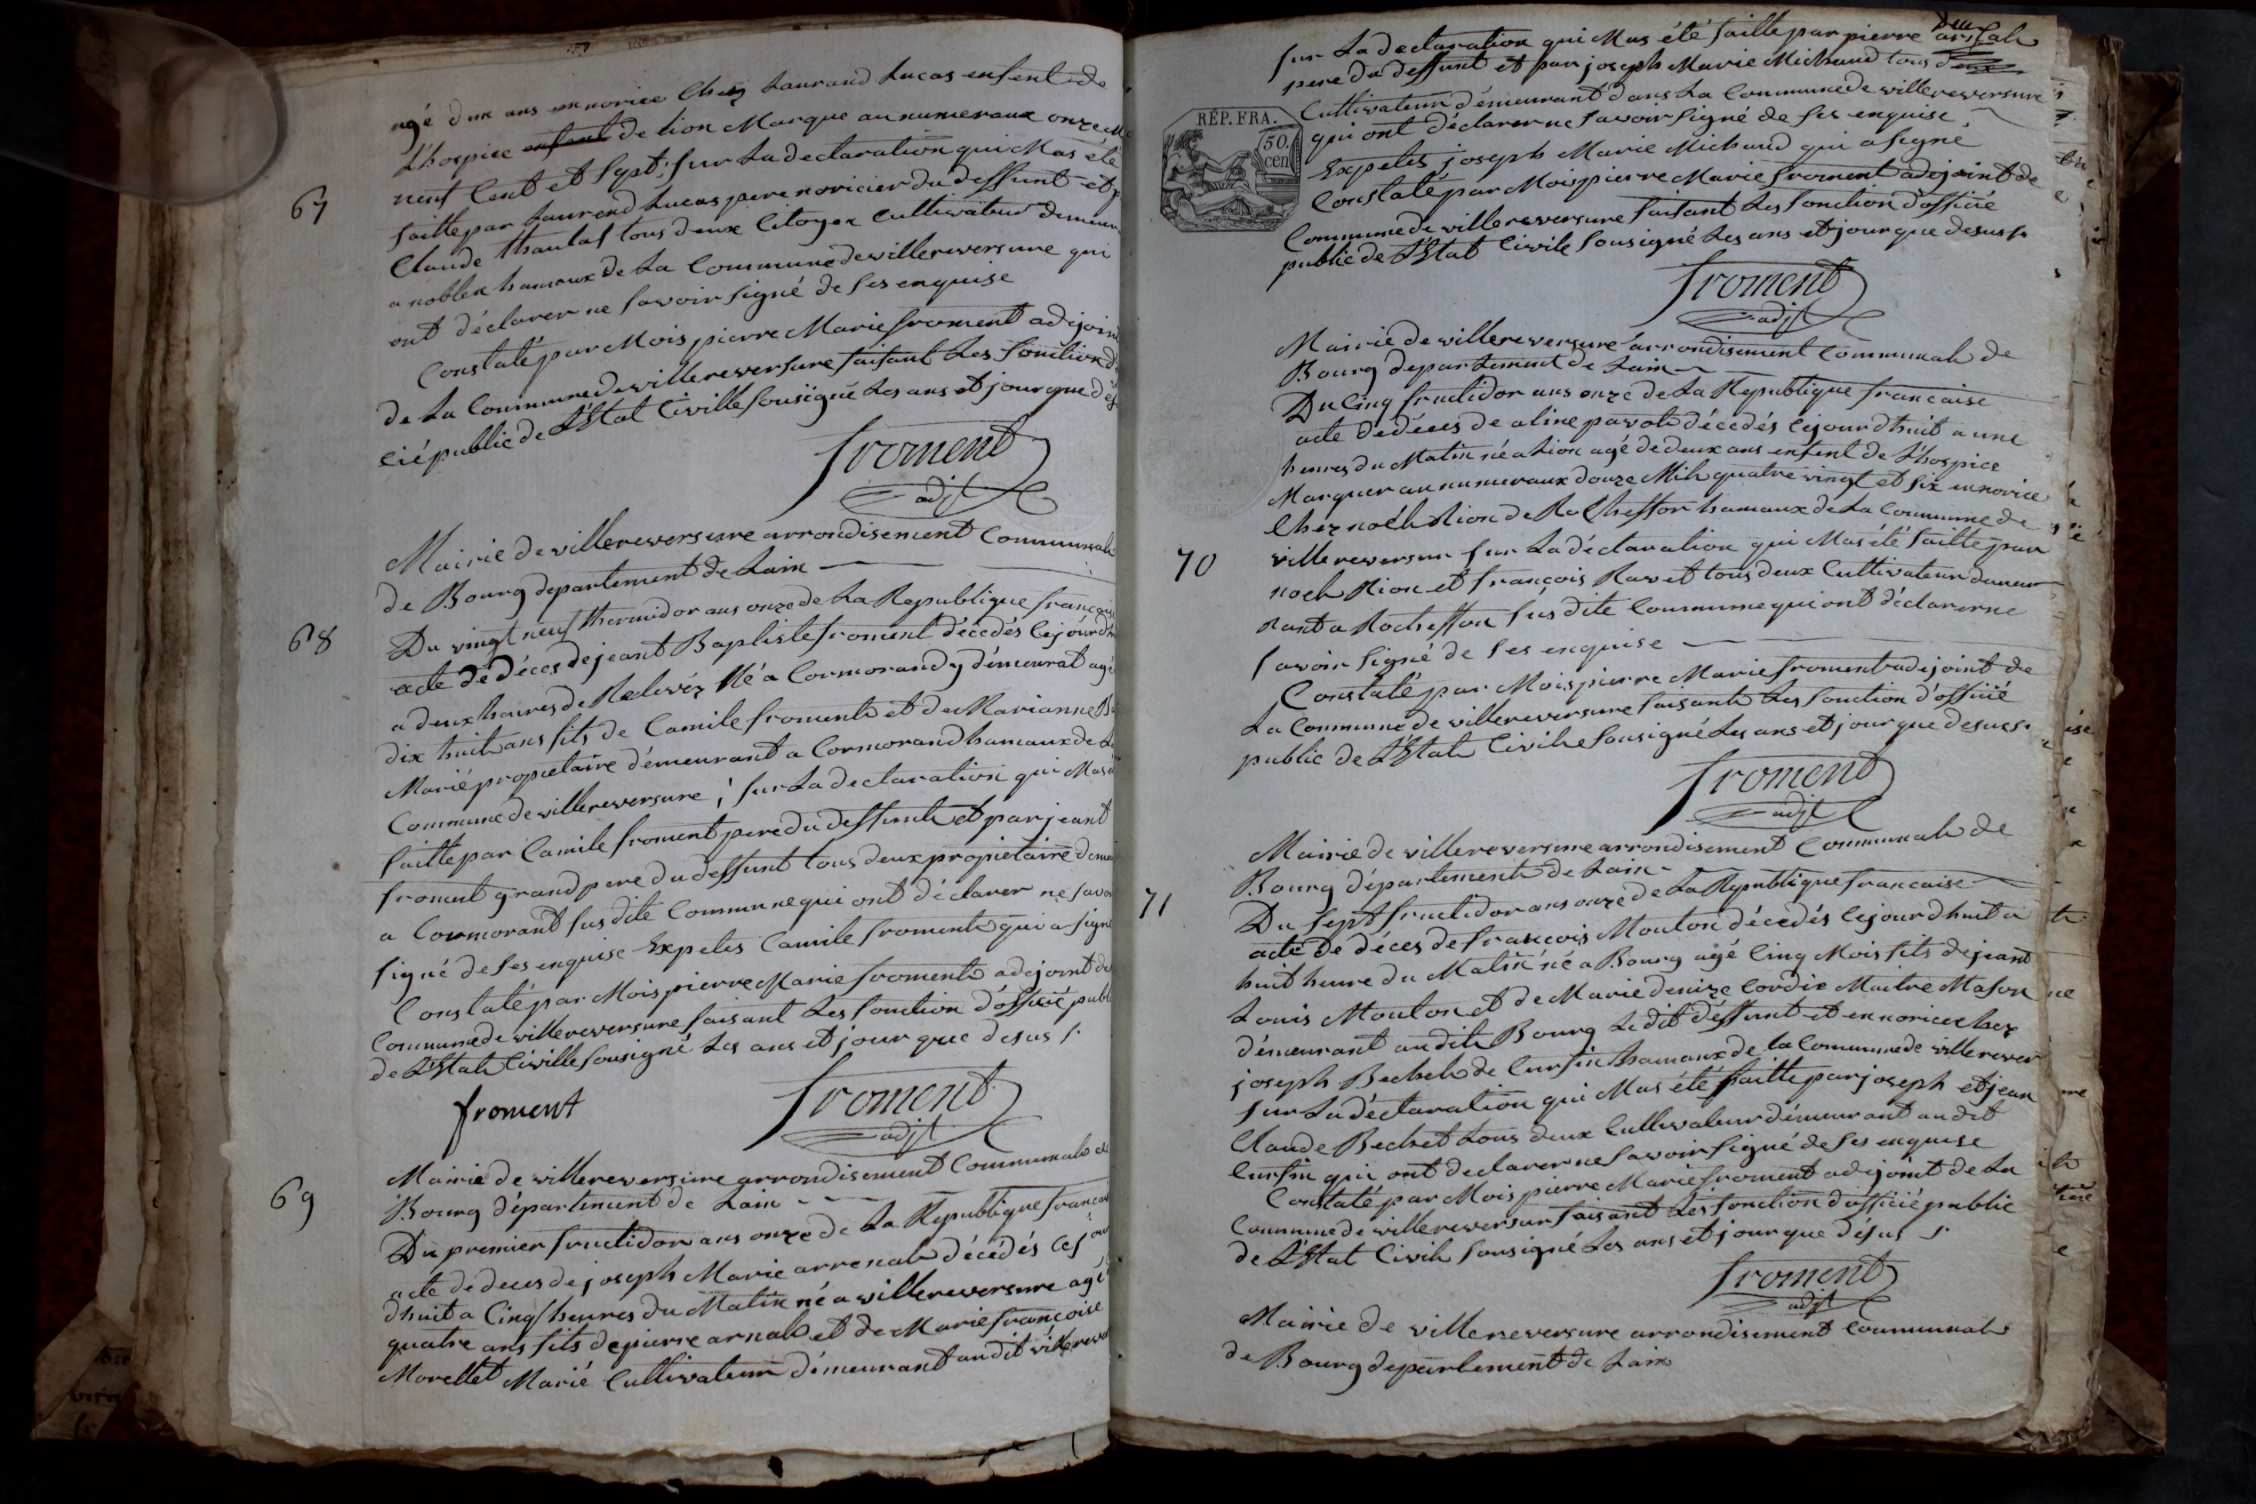 agé dun ans en norice Chez Laurand Lucas enfent de
L'hospice enfent de lion Marque au numeraux onze Mil
67
neuf Cent et Sept; sur La declaration qui Mas été
faitte par Laurend Lucas pere noricier du deffunt et p
Claude thaulas tous deux Citoyen Cultivateur demeur
a noblen hamaux de La Commune de villereversure qui
ont déclarer ne Savoir signé de Ses enquise
Constaté par Mois pierre Marie froment adjoint
de La Commune de villereversure faisant Les fonction d
cié public de L'Etat Civille Sousigné Les ans et jour que des
froment
adjt
Mairie de villereversure arrondisement Communal
de Bourg departement de Lain
68
Du vingt neuf thermidor ans onze de La Republique francaise
acte de déces de jeant Baptiste froment décedés Cejourd
a deux haires de Relevéz Né a Cormorand y démeurat agé
dix huit ans fils de Camile froment et de Marianne
Marié propietaire démeurant a Cormorand hamaux de La
Commune de villereversure; sur La declaration qui Mas
faitte par Camile froment pere du deffunt et par jeant
froment grand pere du deffunt tous deux propietaire demeu
a Cormorant susdite Commune qui ont déclarer ne savoi
signé de Ses enquise Expetes Camile froment qui a signé
Constaté par Mois pierre Marie froment adjoint de
Commune de villereversure faisant Les fonction d'officié publ
de L'Etat Civille Sousigné Les ans et jour que desus
froment
froment
adjt
69
Mairie de villereversure arrondisement Communal de
Bourg département de Lain
Du premier fructidor ans onze de La Republique francai
acte de deces de joseph Marie arrenal décédés Cejour
dhuit a Cinq heures du Matin né a villereversure agé
quatre ans fils de pierre arnal et de Marie françoise
Morellet Marié Cultivateur démeurant au dit villerever
sur La declaration qui Mas été faitte par pierre
pere du deffunt et par joseph Marie Michaud tous deux
RÉP. FRA.
50.
cen
Cultivateur démeurant dans La Commune de villereversure
qui ont déclarer ne savoir signé de ses enquise
Expetes joseph Marie Michaud qui a signé
Constaté par Mois pierre Marie froment adjoint de
Commune de villereversure faisant Les fonction d'officié
public de L'Etat Civile Sousigné Les ans et jour que desus
froment
adjt
Mairie de villereversure arrondisement Communal de
Bourg departement de Lain
Du Cinq fructidor ans onze de La Republique francaise
acte de déces de aline pavot décedés Cejourdhuit a une
heures du Matin né a Lion agé de deux ans enfent de L'hospice
Marquer au numeraux douze Mil quatre vingt et six en norice
Chez noél Rion de Rocheffor hamaux de La Commune de
70
villereversur sur La déclaration qui Mas été faitte par
noel Rion et françois Ravet tous deux Cultivateur demeur
rant a Rocheffon susdite Commune qui ont déclarer ne
savoir signé de ses enquise
Constaté par Mois pierre Marie froment adjoint de
La Commune de villereversure faisant Les fonction d'officié
public de L'Etat Civile Sousigné Les ans et jour que desus
froment
adjt
Mairie de villereversure arrondisement Communal de
Bourg département de Lain
71
Du Sept fructidor ans onze de La Republique francaise
acte De déces de françois Mouton décedés Cejourdhuit a
huit heure du Matin né a Bourg agé Cinq Mois fils de jeant
Louis Mouton et de Marie denize Cordie Maitre Mason
démeurant audit Bourg Ledit deffunt et en norice chez
joseph Bechet de Cursin hamaux de la Commune de villerever
sur La déclaration qui Mas été faitte par joseph et jean
Claude Bechet tous deux Cultivateur démeurant audit
Cursin qui ont declarer ne savoir signé de ses enquise
Constaté par Mois pierre Marie froment adjoint de La
Commune de villereversur faisant Les fonction d'officié public
de L'Etat Civil Sousigné Les ans et jour que désus
froment
adjt
Mairie de villereversure arrondisement Communal
de Bourg departement de Lain